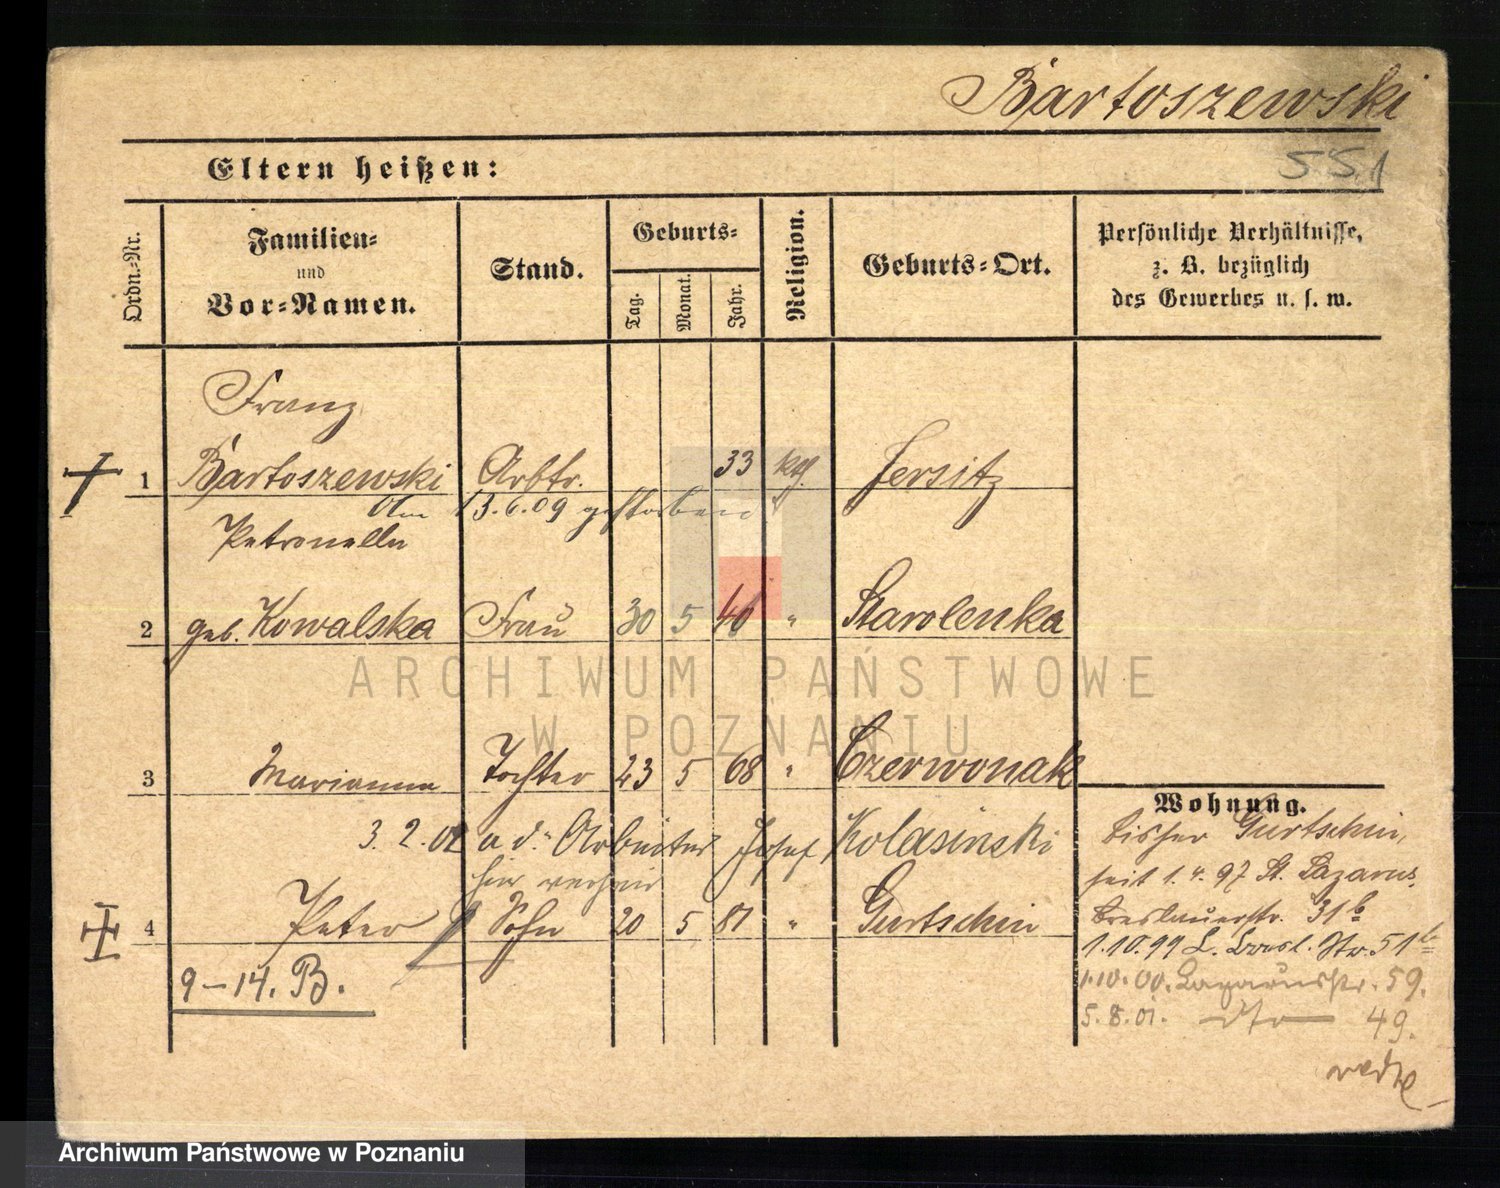 Bartoszewski
551
Eltern heißen:
Ordn.-Nr.
Familien-
und
Vor-Namen.
Stand.
Geburts-
Tag.
Monat.
Jahr.
Religion.
Geburts-Ort.
Persönliche Verhältnisse,
z. B. bezüglich
des Gewerbes u. s. w.
Franz
1 Bartoszewski Arbtr. 33 kth. Jersitz
Am 13.6.09 gestorben
Petronella
2 geb. Kowalska Frau 30 5 40 " Starolenka
ARCHIWUM PAŃSTWOWE
W POZNANIU
3 Marianna Tochter 23 5 68 " Czerwonak
Wohnung.
3.2.02 a. d. Arbeiter Josef Kolasinski
hier verheir
bisher Gurtschin,
seit 1.4.97 St. Lazarus,
4 Peter Sohn 20 5 81 " Gurtschin
Breslauerstr. 31b
1.10.99 L. Bresl. Str. 51b
9–14. B.
1.10.00. Lazarusstr. 59.
5.8.01. dto 49.
Archiwum Państwowe w Poznaniu